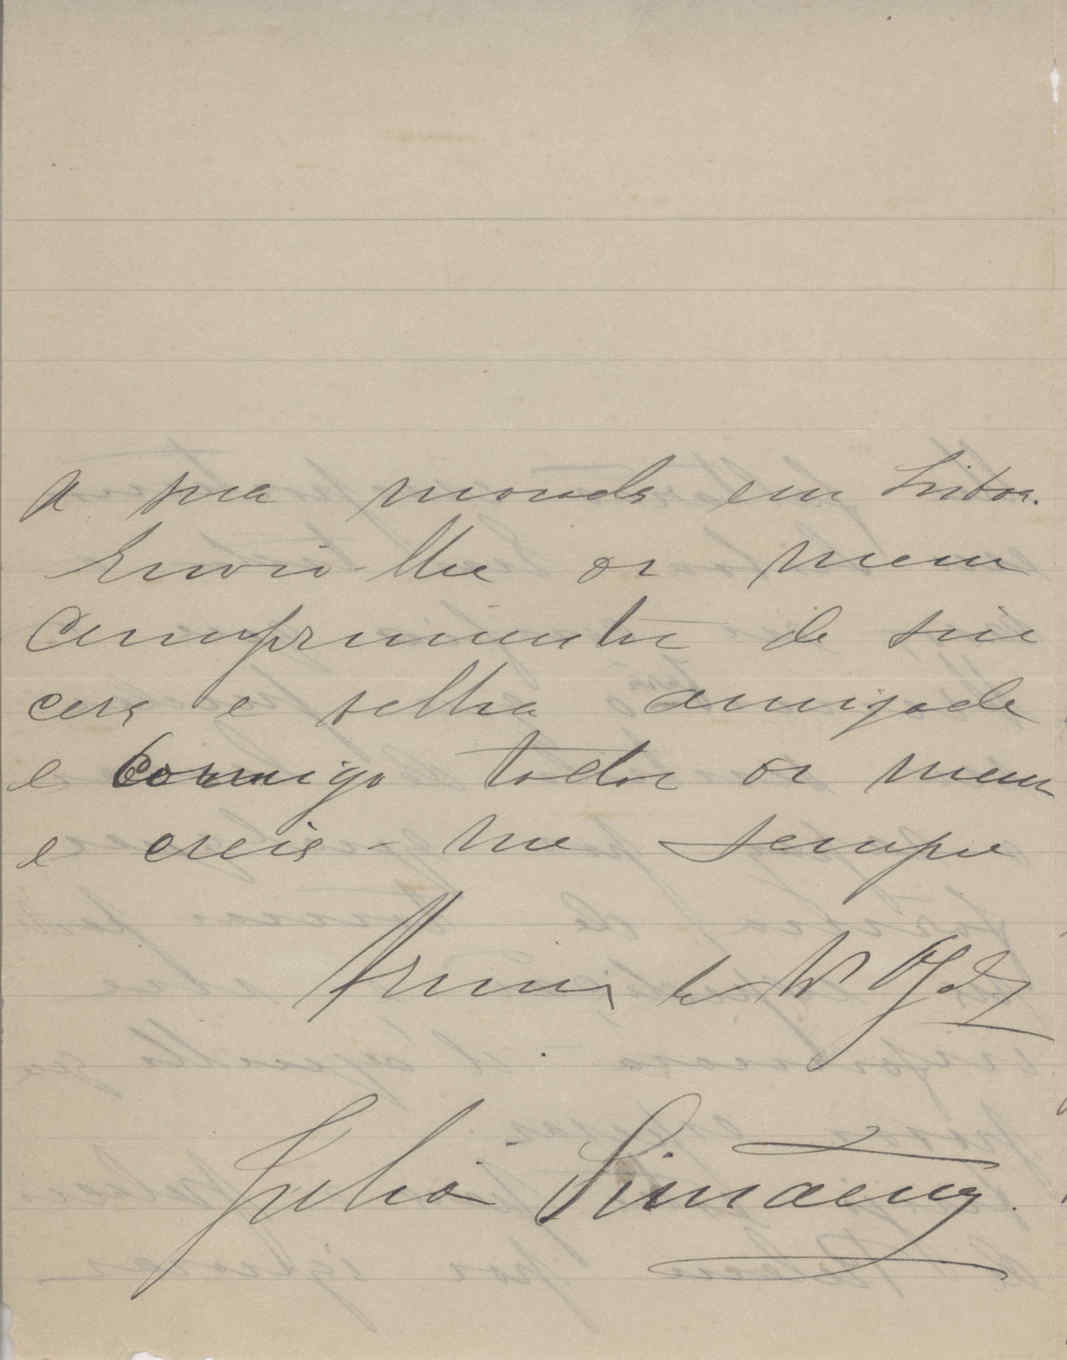 a sua morada em Lisboa.
Envio-lhe os meus
cumprimentos de sin
cera e velha amizade
e comigo todos os meus
e creia-me sempre
de V
Julia